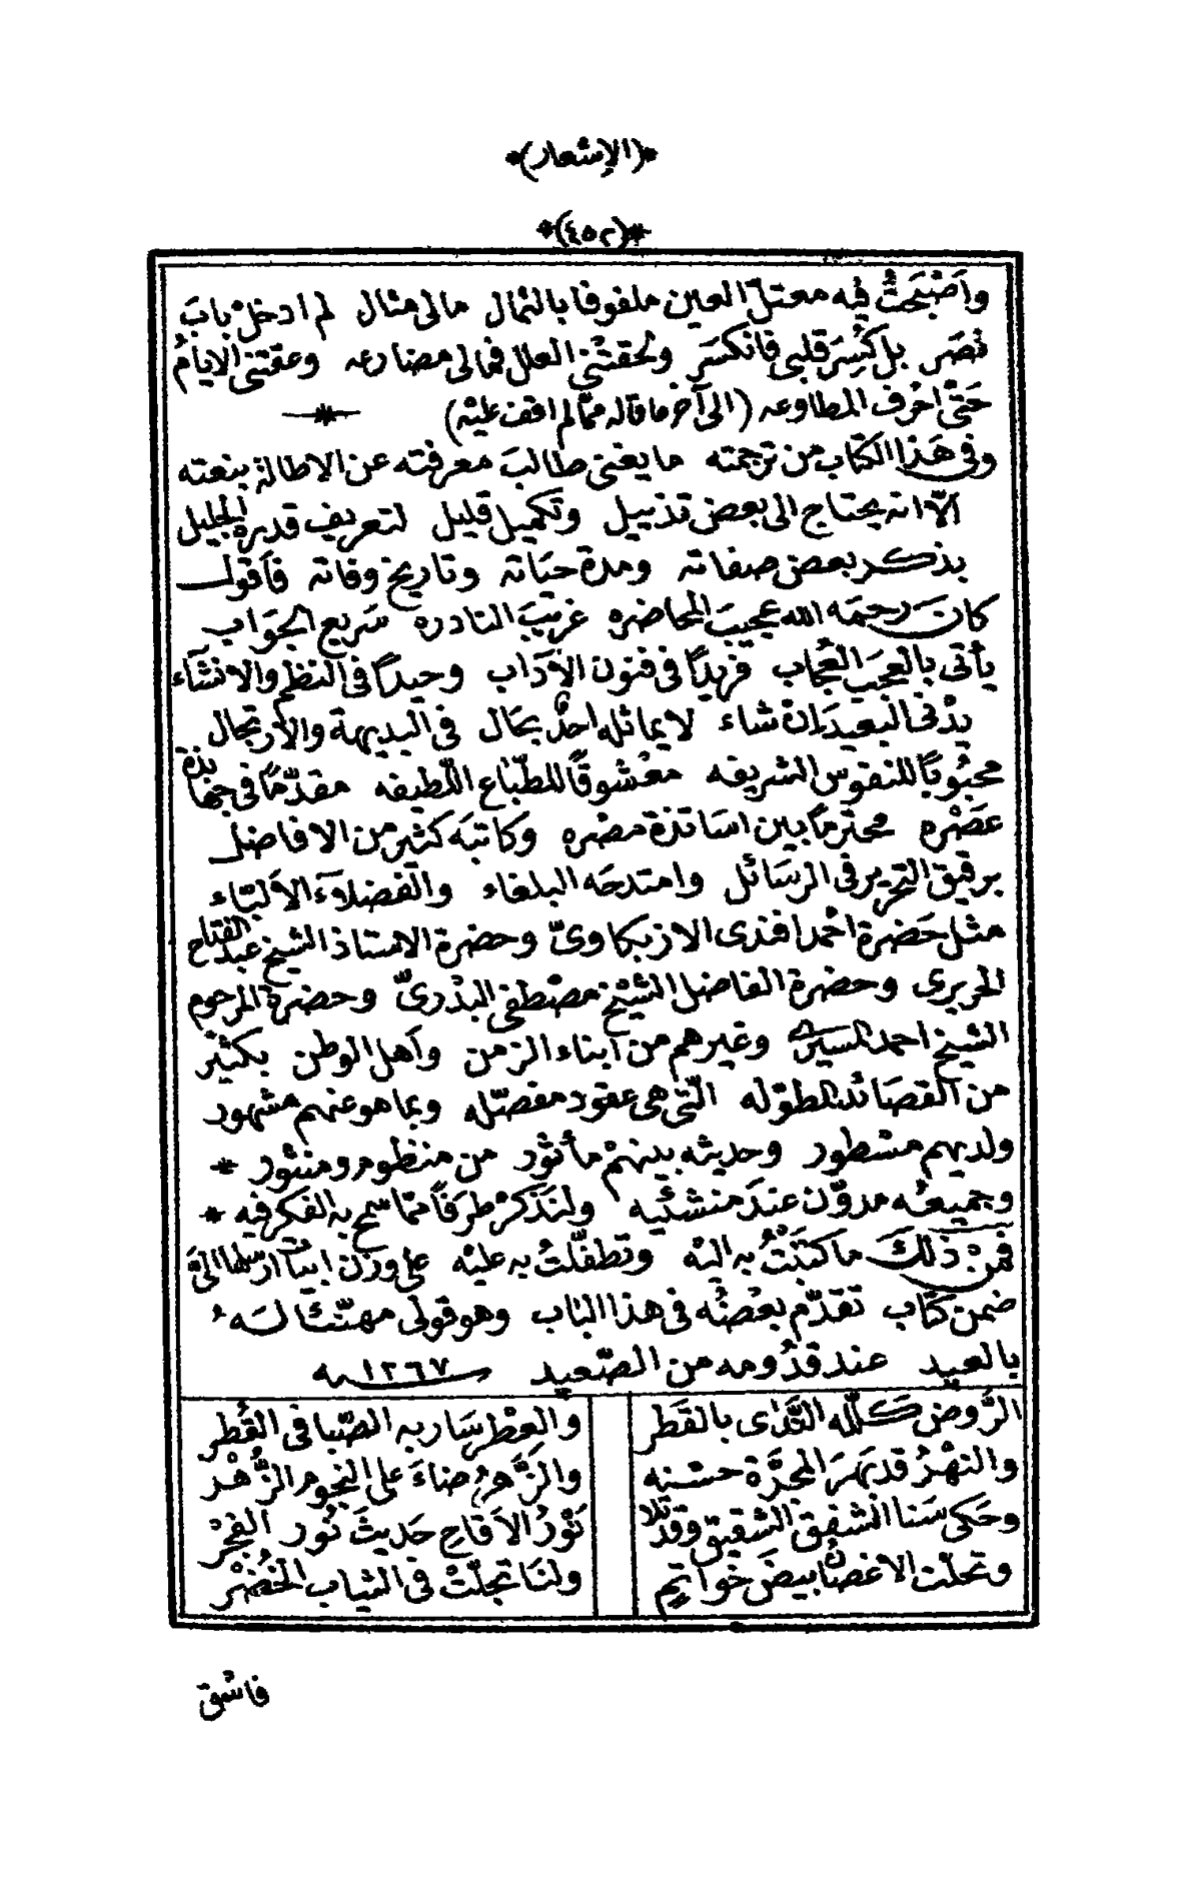 *(الإشعار)*
*(٤٥٢)*
وأصْبَحَتْ فيه معتلّ العين ملفوفا بالثمال مالى مثال لم ادخلْ بابَ
نصَر بل كُسِرَ قلبى فانكسَر ولحقتْنى العلل فمالى مضارعه وعقتنى الايامُ
حَتىْ احْرف المطاوعه (الى آخر ما قاله ممّا لم اقف عليْه) *
وفى هَذا الكتاب من ترجمته ما يغنى طالبَ معرفته عن الاطالة بنعته
الّا انه يحتاج الى بعض تذييل وتكميل قليل لتعريف قدره الجليل
بذكر بعض صفاته ومدة حيَاته وتاريخ وفاته فأقول
كانَ رحيمَه الله عجيبَ المحاضره غريبَ النادره سَريع الجوَاب
يأتى بالعجَب العُجاب فريدًا فى فنون الآدَاب وحيدًا فى النظم والانشَآء
يدْنى البعيدَ إن شاء لا يماثله احدٌ بحَال فى البديهة والارتجال
محبُوبًا للنفوس الشريفه معْشوقًا للطّباع اللّطيفه مقدّمًا فى جهابذة
عَصْره محترمًا بين اسَاتذة مصْره وكاتبَه كثير من الافاضل
برقيق التحرير فى الرسَائل وامتدحَه البلغاء والفضلآء الألبّاء
مثل حَضرة احْمد افندى الازبكاوىّ وحضرة الاستاذ الشيخ عبد الفتاح
الحريرى وحضرة الفاضل الشيْخ مصْطفى البدْرىّ وحضرة المرحوم
الشيخ احمد وغيرهم من أبناء الزمن وأهل الوطن بكثيْر
من القصَائد المطوّله الّتى هى عقود مفصّله وبما هو عنهم مشهود
ولديهم مسْطور وحديثه بينهمْ مأثور من منظوم ومنثور *
وجميعُه مدوّن عندَ منشئيه ولنذكرْ طرَفًا ممّا سمح به الفكر فيه *
فمنْ ذلكَ ما كتبْتُ به اليْه وتطفّلتُ به عليْه على وزن ابيات ارسلها الىَّ
ضمن كتَاب تقدّم بعْضُه فى هذا البَاب وهو قولى مهنّئًا لَهُ
بالعيد عند قدُومه من الصّعيد سنة ١٢٦٧
الرَّوض كلّله النَّدَى بالقَطر والعطر سَار به الصّبا فى القُطر
والنهْرُ قد بهَرَ المجرَّة حسْنه والزَّهرُ ضاءَ على النجوم الزُّهْر
وحَكى سَنا الشفق الشقيق وقد تلا نَوْرُ الأقاح حَديثَ نُور الفجْر
وتحلّت الاغصَانُ بيضَ خواتمٍ ولنَا تجلّتْ فى الثياب الخُضْر
فاشق